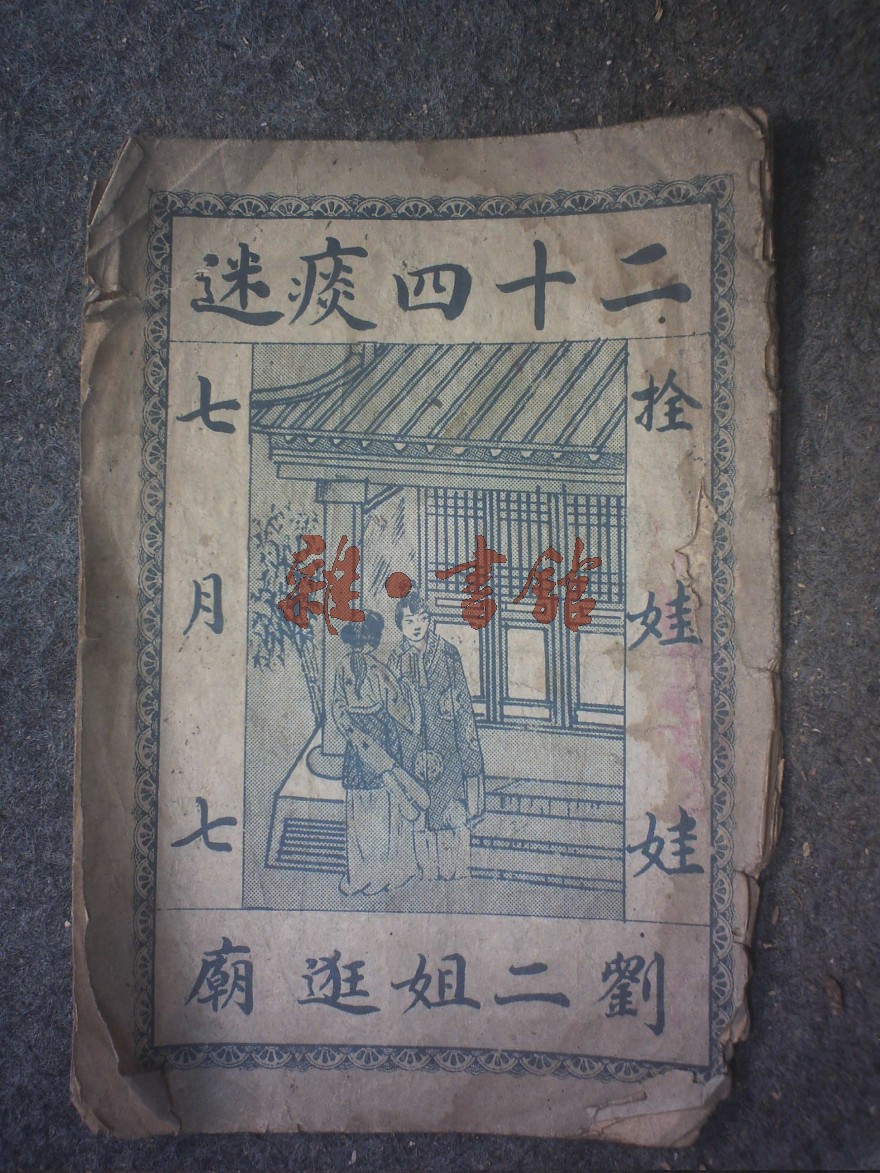 二十四痰迷
拴娃娃
七月七
劉二姐逛廟
雜·書館